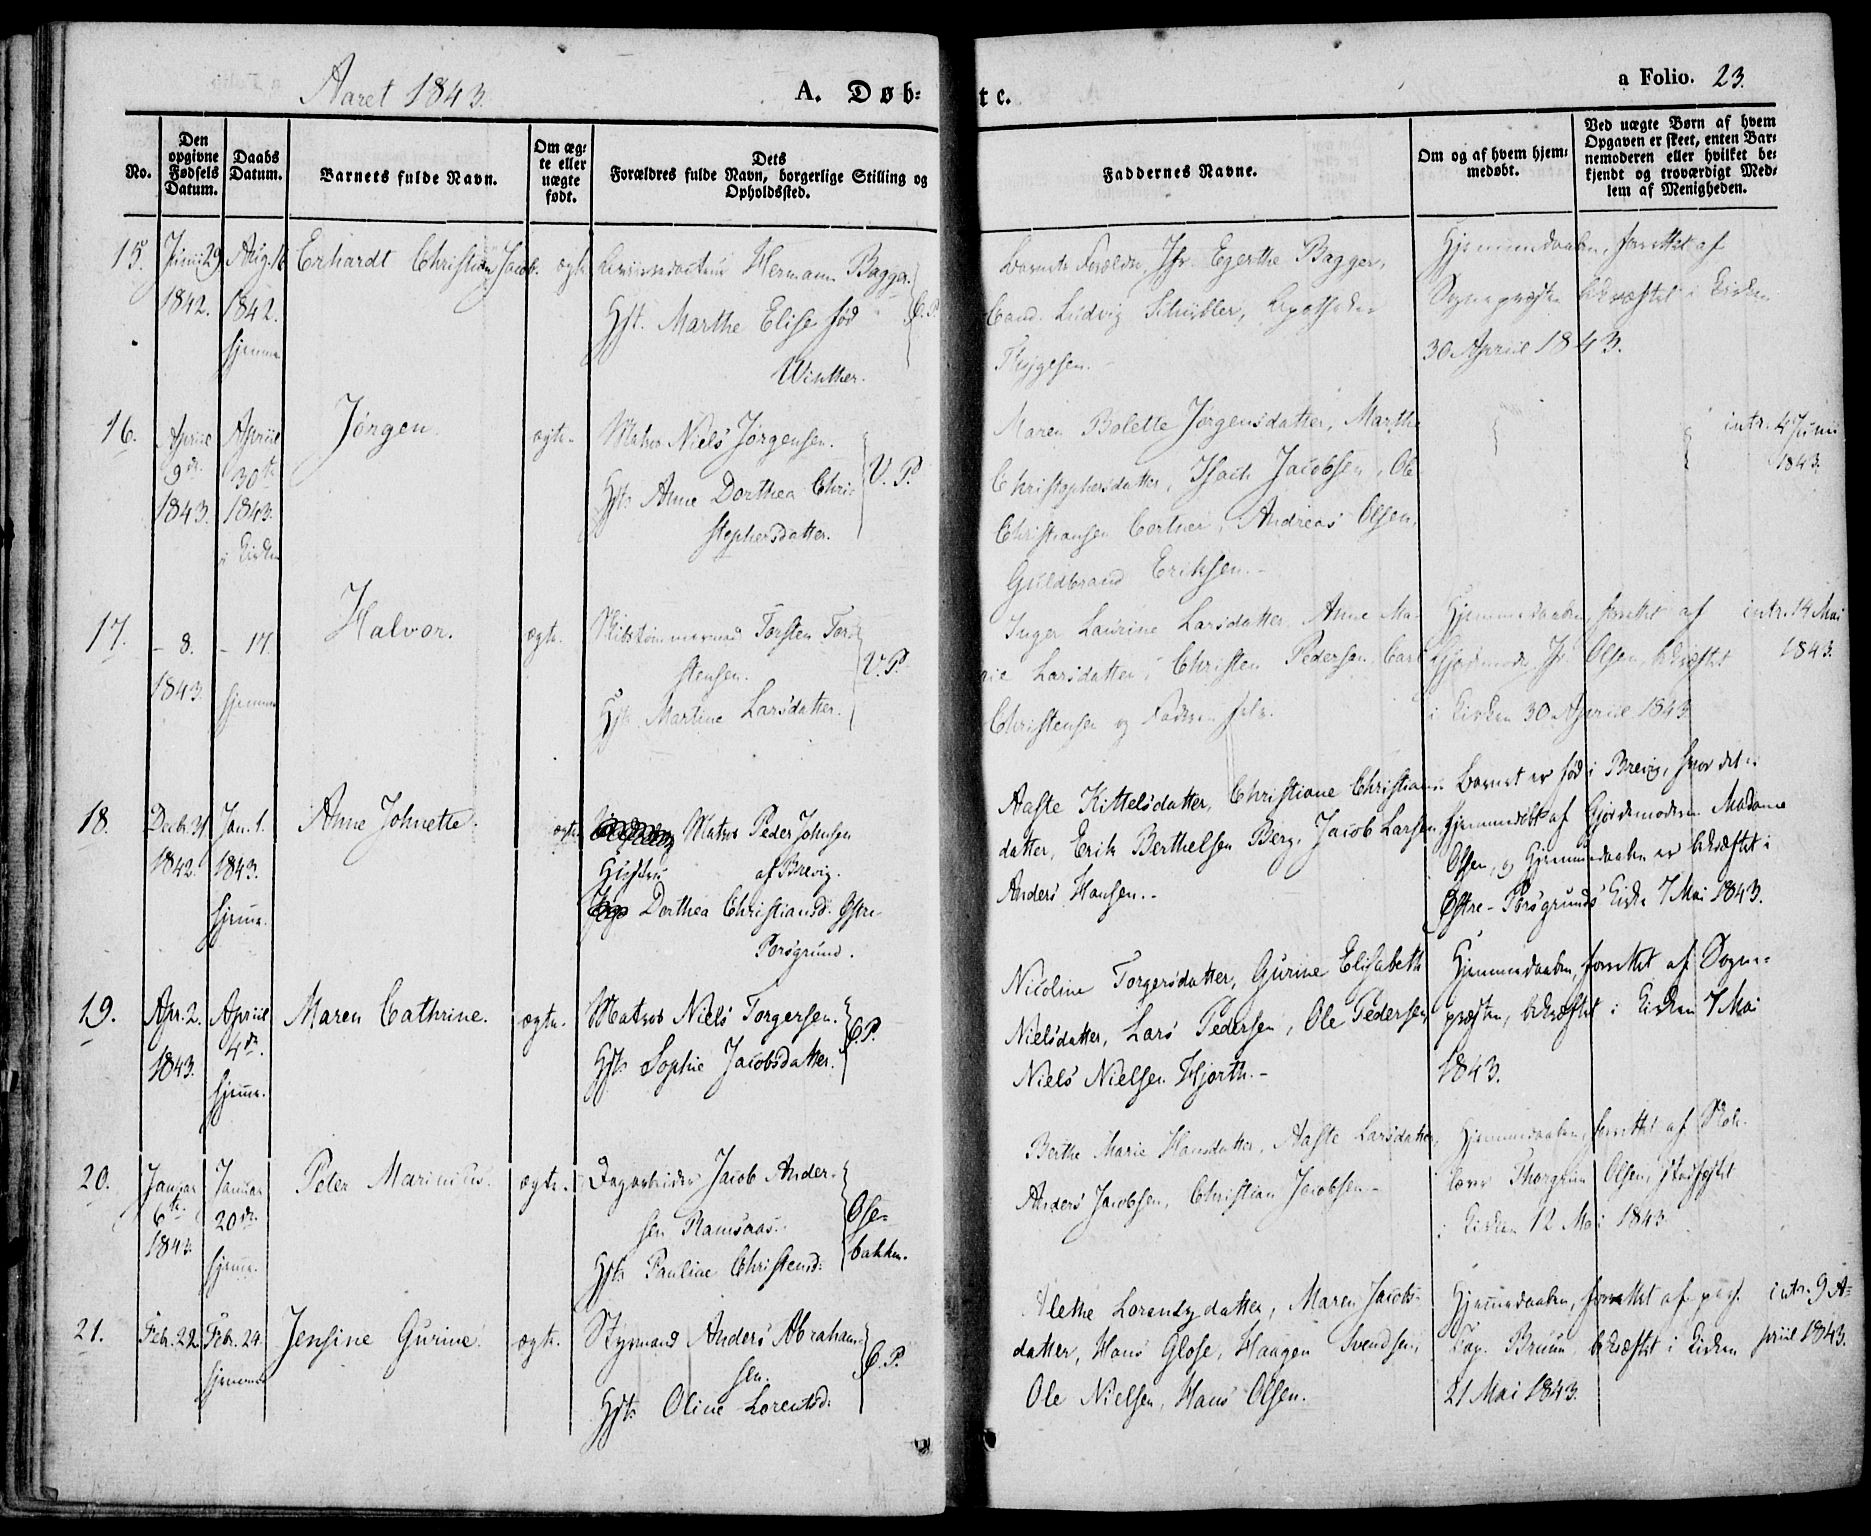 Aaret 1843.
A. Døb=
te.
a Folio. 23.
No.
Den opgivne Fødsels Datum.
Daabs Datum.
Barnets fulde Navn.
Om æg=
te eller
uægte
født.
Dets
Forældres fulde Navn, borgerlige Stilling og
Opholdssted.
Faddernes Navne.
Om og af hvem hjem=
medøbt.
Ved uægte Børn af hvem
Opgaven er skeet, enten Bar=
nemoderen eller hvilket be=
kjendt og troværdigt Med=
lem af Menigheden.
15. Junii 29 Aug. 16 Erhardt Christian Jacob. ægte Hermann Bagger
1842. 1842. Hst. Marthe Elise fød
hjemme Winther.
Barnets Forældre, Jfr. Egerthe Bagger,
Cand. Ludvig Schübler, Apotheker
Thygesen.
Hjemmedaaben, forrettet af
Sognepræsten bekræftet i Kirken
30 April 1843.
16. Apriil Apriil Jørgen. ægte. Matros Niels Jørgensen.
9de 30te Hst. Anne Dorthea Chri= V. P.
1843. 1843. stophersdatter.
i Kirken
Maren Bolette Jørgensdatter, Marthe
Christophersdatter, Isach Jacobsen, Ole
Christiansen Cortner, Andreas Olsen,
Guldbrand Eriksen.
intr. 4 Junii
1843.
17. - 8. - 17. Halvor. ægte. Torsten Tor=
1843. hjemme stensen. V. P.
Hst. Martine Larsdatter.
Inger Laurine Larsdatter, Anne Ma=
rie Larsdatter, Christen Pedersen, Carl
Christensen og Faderen selv.
Hjemmedaaben, forrettet af
Gjordemoder Fr. Olsen, bekræftet
i Kirken 30 Apriil 1843
intr. 14 Mai
1843.
18. Decbr. 31 Jan. 1. Anne Johnette. ægte. Matros Peder Johnsen
1842. 1843. Hustru af Brevig.
hjemme. Dorthea Christiansd. Østre-
Porsgrund.
Aaste Kittelsdatter, Christiane Christians=
datter, Erik Berthelsen Berg, Jacob Larsen,
Anders Hansen.
Barnet er født i Brevig, hvor det er
hjemmedøbt af Gjordemoderen Madame
Olsen, og Hjemmedaaben er bekræftet i
Østre-Porsgrunds Kirke 7 Mai 1843.
19. Apr. 2. Apriil Maren Cathrine. ægte. Matros Niels Torgersen.
1843. 4de. Hst. Sophie Jacobsdatter. Ø. P.
hjemme.
Nicoline Torgersdatter, Gurine Elisabeth
Nielsdatter, Lars Pedersen, Ole Pedersen,
Niels Nielsen Hjorth.
Hjemmedaaben, forrettet af Sogne=
præsten, bekræftet i Kirken 7 Mai
1843.
20. Januar Januar Peter Marinius. ægte. Dagarbeider Jacob Ander=
6te 20de. sen Ramsaas. Ose=
1843 hjemme. Hst. Pauline Christensd. bakken.
Berthe Marie Hansdatter, Aaste Larsdatter,
Anders Jacobsen, Christian Jacobsen
Hjemmedaaben, forrettet af Skole=
lærer Thorgrim Olsen, stadfæstet
i Kirken 12 Mai 1843
21. Febr. 22. Febr. 24. Jensine Gurine. ægte. Styrmand Anders Abraham=
hjemme sen. Ø. P.
Hst. Oline Lorentsd.
Alethe Lorentzdatter, Maren Jacobs=
datter, Hans Glose, Haagen Svendsen,
Ole Nielsen, Hans Olsen.
Hjemmedaaben, forrettet af pers.
Cap. Bruun, bekræftet i Kirken
21 Mai 1843.
intr. 9 A=
priil 1843.